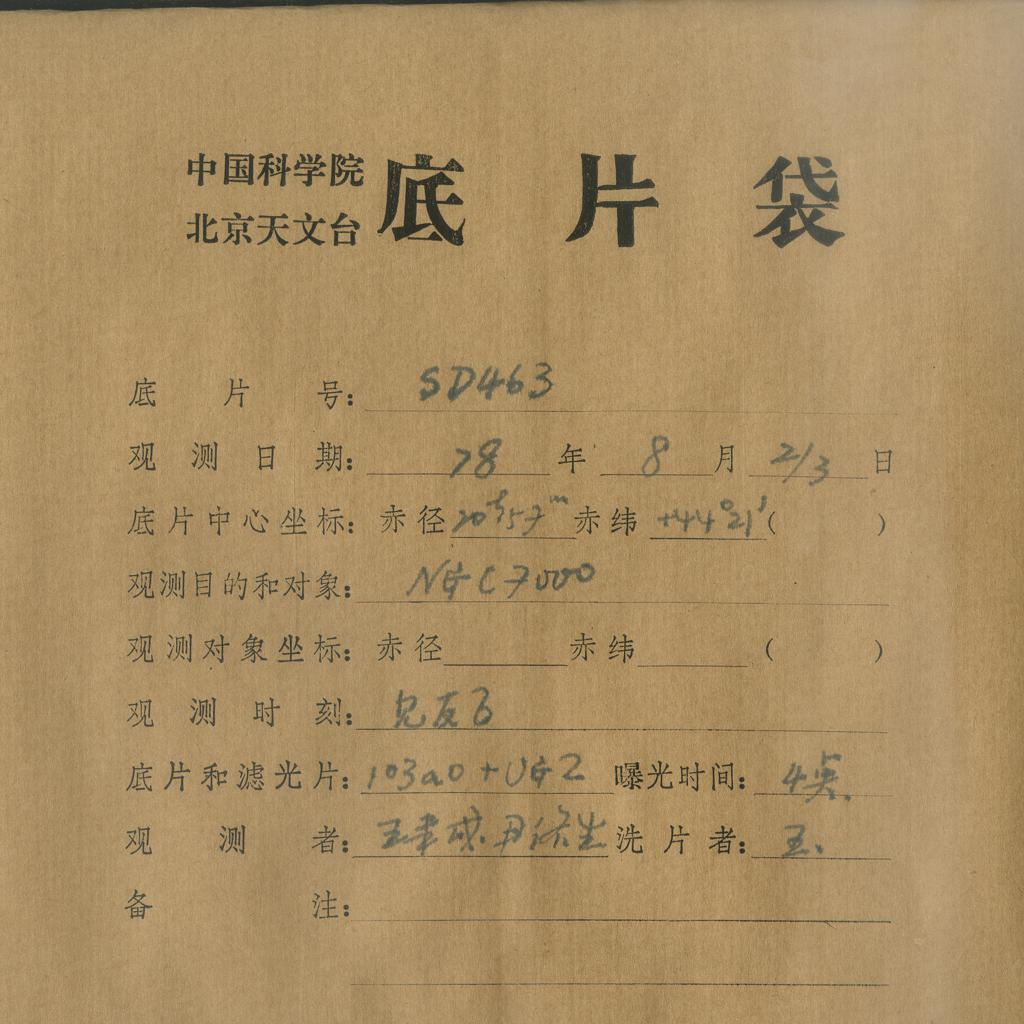 中国科学院
北京天文台
底片袋
底片号: SD463
观测日期: 78年8月2/3日
底片中心坐标: 赤径20ʰ57ᵐ赤纬+44°21′( )
观测目的和对象: NGC7000
观测对象坐标: 赤径 赤纬 ( )
观测时刻: 见反面
底片和滤光片: 103aO+UG2 曝光时间: 4
观测者: 王 洗片者: 王.
备注: